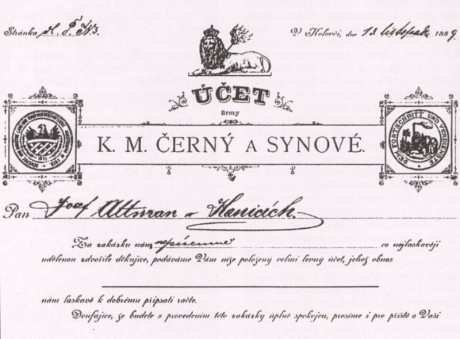 Stránka
V
, dne 13 listopadu 1889
ÚČET
firmy
K. M. ČERNÝ A SYNOVÉ.
FORTSCHRITT UND
Pan Josef Altman v Hanicích.
Za zakázku nám písemně co nejlaskavěji
udělenou zdvořile děkujíce, podáváme Vám níže položený velmi levný účet, jehož obnos
nám laskavě k dobrému připsati račte.
Doufajíce, že budete s provedením této zakázky úplně spokojen, prosíme i pro příště o Vaši